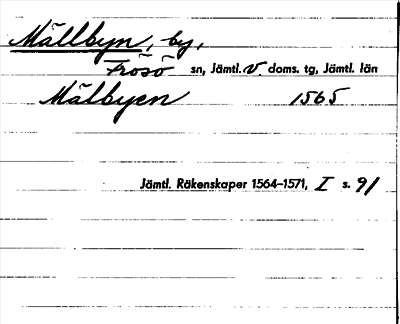 Mällbyn, by,
Frösö sn, Jämtl. V. doms. tg, Jämtl. län
Mälbyen 1565
Jämtl. Räkenskaper 1564–1571, I s. 91